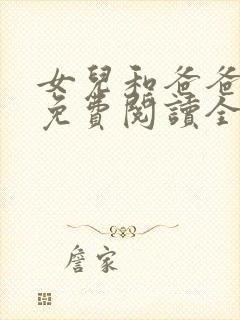 女兒和爸爸
免費閱讀全
詹家